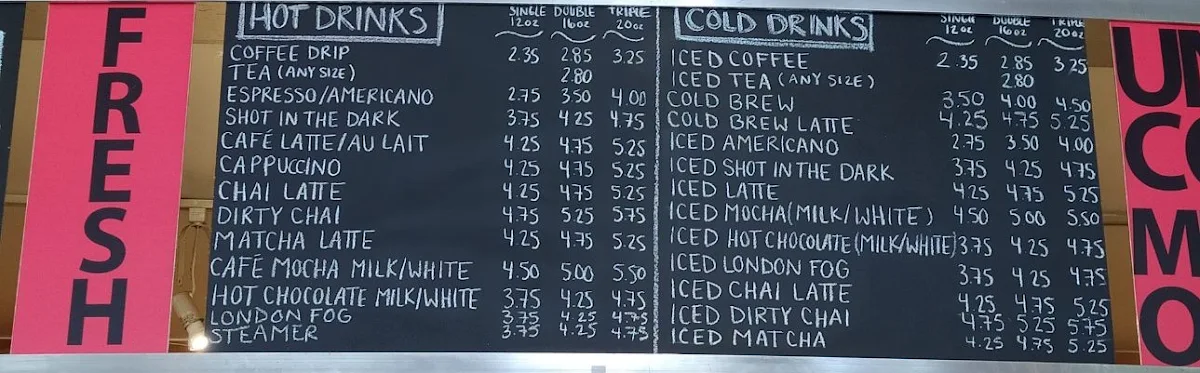 FRESH
HOT DRINKS
SINGLE DOUBLE TRIPLE
12oz 16oz 20oz
COFFEE DRIP 2.35 2.85 3.25
TEA (ANY SIZE) 2.80
ESPRESSO/AMERICANO 2.75 3.50 4.00
SHOT IN THE DARK 3.75 4.25 4.75
CAFÉ LATTE/AU LAIT 4.25 4.75 5.25
CAPPUCCINO 4.25 4.75 5.25
CHAI LATTE 4.25 4.75 5.25
DIRTY CHAI 4.75 5.25 5.75
MATCHA LATTE 4.25 4.75 5.25
CAFÉ MOCHA MILK/WHITE 4.50 5.00 5.50
HOT CHOCOLATE MILK/WHITE 3.75 4.25 4.75
LONDON FOG 3.75 4.25 4.75
STEAMER 3.75 4.25 4.75
COLD DRINKS
SINGLE DOUBLE TRIPLE
12oz 16oz 20oz
ICED COFFEE 2.35 2.85 3.25
ICED TEA (ANY SIZE) 2.80
COLD BREW 3.50 4.00 4.50
COLD BREW LATTE 4.25 4.75 5.25
ICED AMERICANO 2.75 3.50 4.00
ICED SHOT IN THE DARK 3.75 4.25 4.75
ICED LATTE 4.25 4.75 5.25
ICED MOCHA (MILK/WHITE) 4.50 5.00 5.50
ICED HOT CHOCOLATE (MILK/WHITE) 3.75 4.25 4.75
ICED LONDON FOG 3.75 4.25 4.75
ICED CHAI LATTE 4.25 4.75 5.25
ICED DIRTY CHAI 4.75 5.25 5.75
ICED MATCHA 4.25 4.75 5.25
UN
CO
M
O